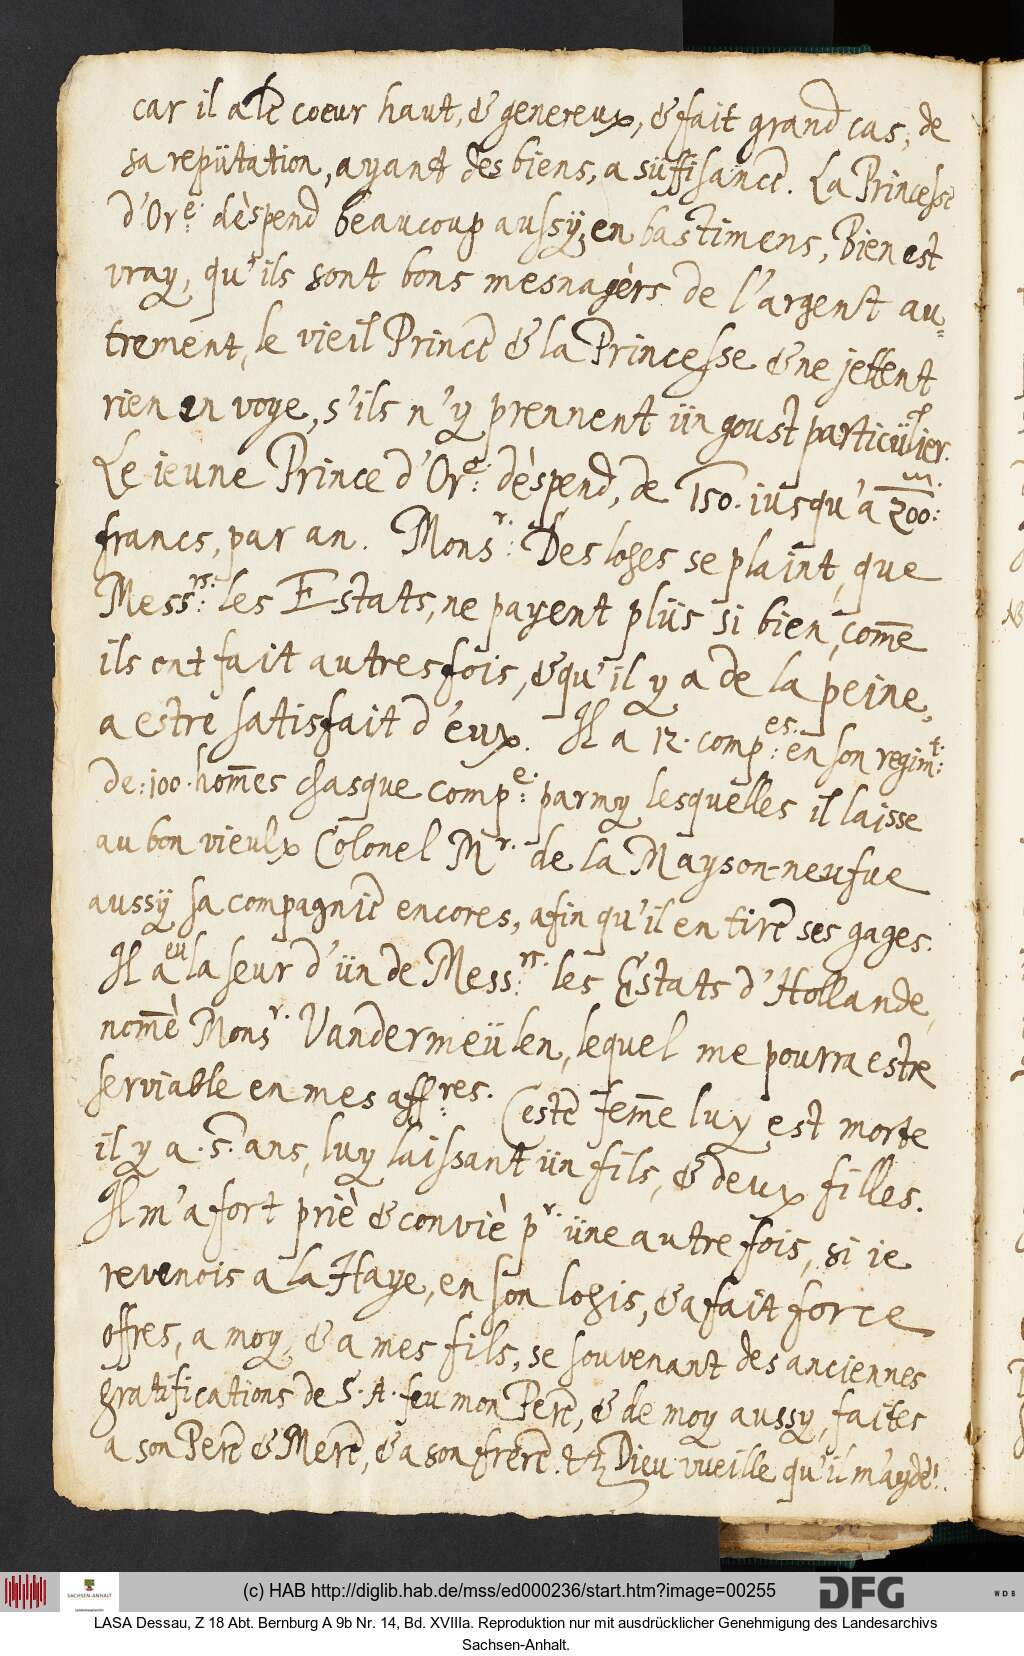 car il a le coeur haut, & genereux, & fait grand cas, de
sa repütation, ayant des biens, a süffisance. La Princesse
d'Or.e: dèspend beaucoup aussÿ, en bastimens, Bien est
vray, qu'ils sont bons mesnagèrs de l'argent au=
trement, le vieil Prince & la Princesse & ne jettent
rien en voye, s'ils n'y prennent ün goust particülier.
Le ieune Prince d'Or.e: dèspend, de 150. iusqu'a 200: m.
francs, par an. Mons.r: Des loges se plaint, que
Mess.rs: les Estats, ne payent plüs si bien, com̄e
ils ont fait autresfois, & qu'il y a de la peine,
a estre satisfait d'eux. Il a 12. comp.es: en son regim.t:
de: 100. hom̄es chasque comp.e: parmy lesquelles il laisse
au bon vieulx Colonel M.r de la Mayson-neufue
aussÿ sa compagnie encores, afin qu'il en tire ses gages.
Il a eu la seur d'ün de Mess.rs: les Estats d'Hollande,
nom̄è Mons.r Vandermeülen, lequel me pourra estre
serviable en mes aff.res. Ceste fem̄e luy est morte
il y a .5. ans, luy laissant ün fils, & deux filles.
Il m'a fort priè & conviè p.r üne autre fois, si ie
revenois a la Haye, en son logis, & a fait force
offres, a moy, & a mes fils, se souvenant des anciennes
gratifications de S. A. feu mon Pere, & de moy aussy, faites
a son Pere & Mere, & a son frere. &c Dieu vueille qu'il m'aydè!
(c) HAB http://diglib.hab.de/mss/ed000236/start.htm?image=00255
SACHSEN-ANHALT
DFG
WDB
LASA Dessau, Z 18 Abt. Bernburg A 9b Nr. 14, Bd. XVIIIa. Reproduktion nur mit ausdrücklicher Genehmigung des Landesarchivs
Sachsen-Anhalt.